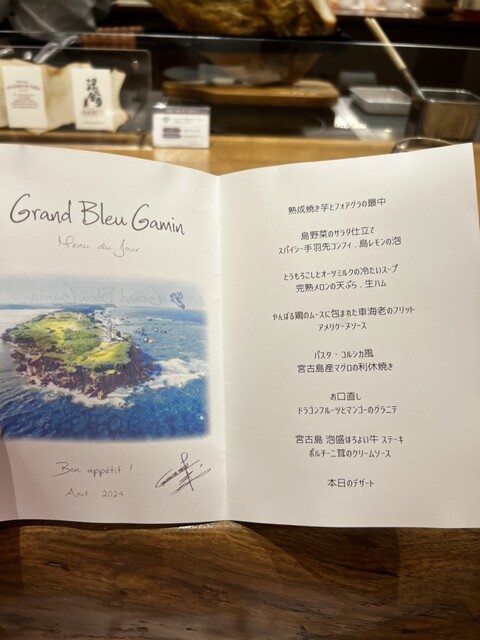 Grand Bleu Gamin
Menu du Jour
Bon appétit !
Aout . 2024
熟成焼き芋とフォアグラの最中
島野菜のサラダ仕立て
スパイシー手羽先コンフィ、島レモンの泡
とうもろこしとオーツミルクの冷たいスープ
完熟メロンの天ぷら、生ハム
やんばる鶏のムースに包まれた車海老のフリット
アメリケーヌソース
パスタ・コルシカ風
宮古島産マグロの利休焼き
お口直し
ドラゴンフルーツとマンゴーのグラニテ
宮古島 泡盛ほろよい牛 ステーキ
ポルチーニ茸のクリームソース
本日のデザート